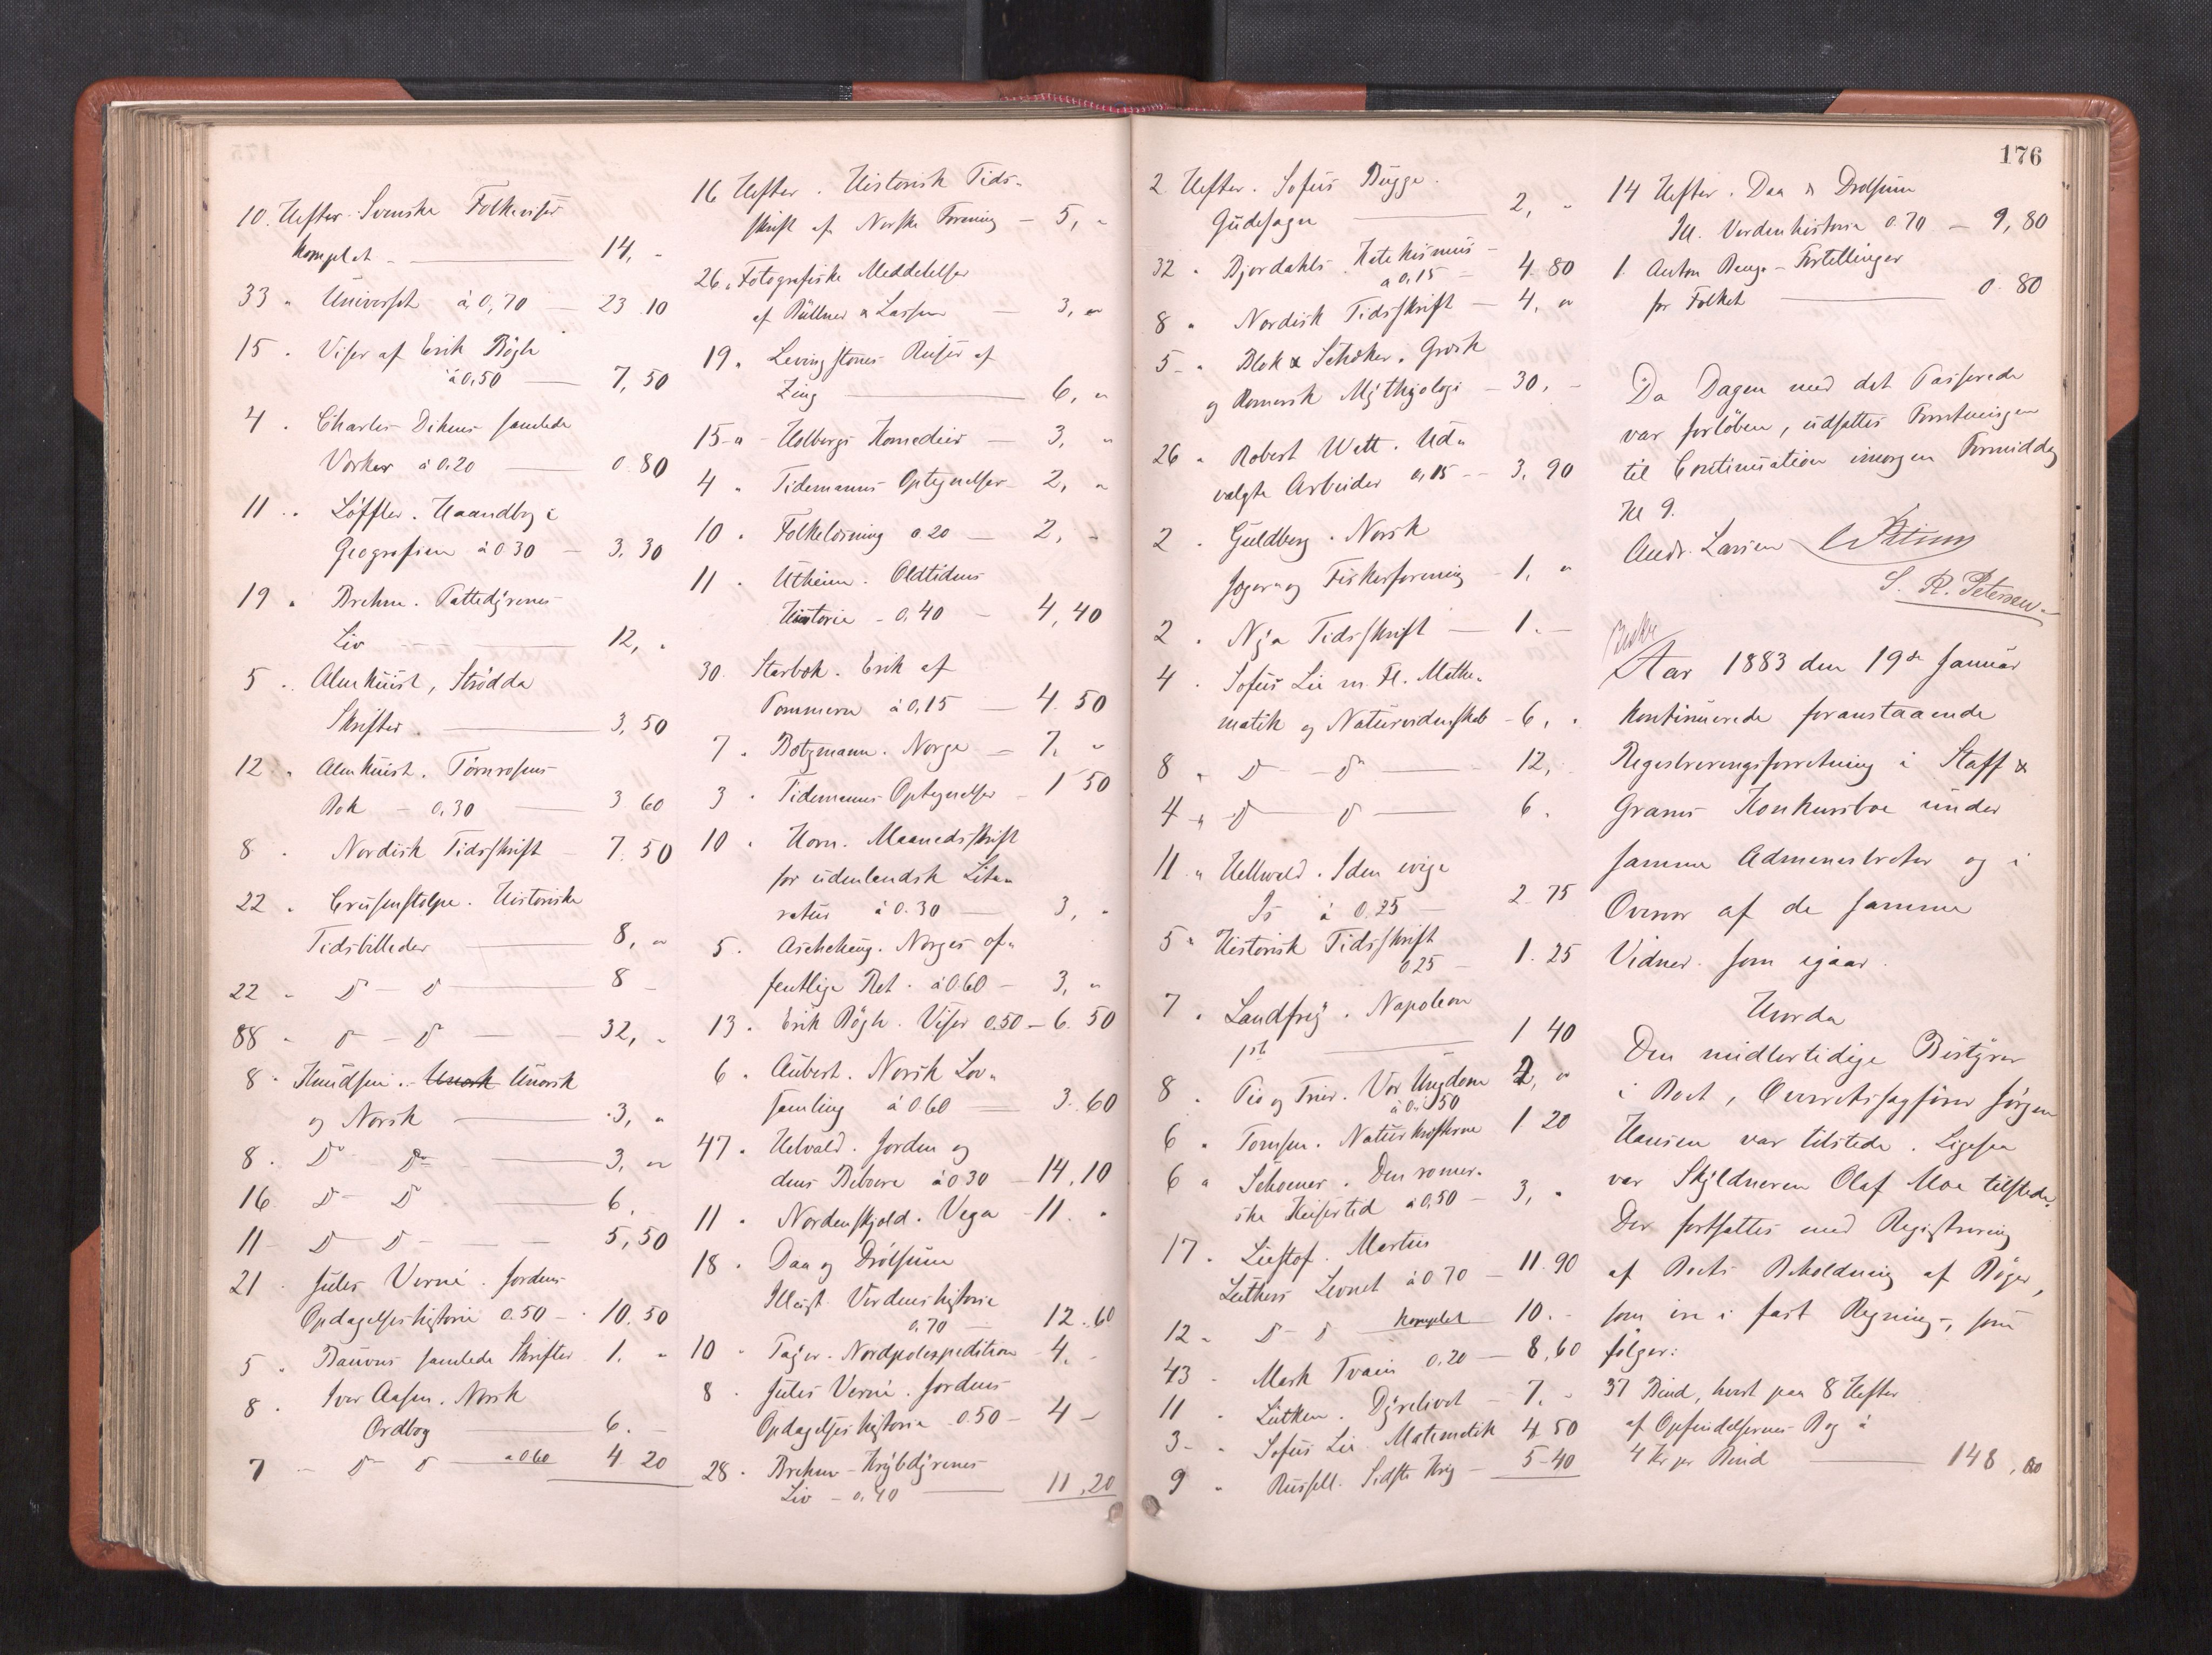 10. Hefter. Svenske Folkeviser
komplet - 14, -
33 " Universet à 0,70 - 23.10
15 . Viser af Erik Bögh
à 0,50 - 7,50
4 . Charles Dikens samlede
Værker à 0.20 - 0.80
11 . Löffler. Haandbog i
Geografien à 0 30 - 3.30
19 . Brehm. Pattedyrenes
Liv - 12, "
5 . Almkuist, Strödda
Skrifter - 3,50
12 " Almkuist. Törnrosens
Bok - 0,30 - 3 60
8 . Nordisk Tidsskrift - 7.50
22 . Crusenstolpe. Historiske
Tidsbilleder - 8, "
22 " D - D - 8 -
88 " D - D - 32, -
8 " Knudsen. Unorsk
og Norsk - 3, "
8 . Do Do - 3, "
16 D - D - 6.
11 - D D - 5,50
21 . Jules Verne. Jordens
Opdagelseshistorie 0.50 - 10.50
5 . samlede Skrifter 1. "
8 . Iver Aasen. Norsk
Ordbog - 6. -
7 - D D - à 0 60 4 20
16 Hefter. Historisk Tids-
skrift af Norske Forening - 5, "
26 " Fotografiske Meddelelser
af & Larsen - 3, "
19 " Levingstones Reiser af
Zing - 6, "
15 " - Holbergs Komedier - 3, "
4 " Tidemanns Optegnelser - 2, "
10 . Folkelæsning 0 20 - 2, -
11 . Utheim. Oldtidens
Historie - 0,40 - 4,40
30. Starbæk. Erik af
Pommern à 0,15 - 4.50
7 " Norge - 7. "
3 . Tidemanns Optegnelser - 1 50
10 . Horn. Maanedsskrift
for udenlandsk Lite-
ratur à 0.30 - 3, "
5 . Aschehoug. Norges of-
fentlige Ret. à 0.60 - 3, "
13 . Erik Bögh. Viser 0.50 - 6.50
6 . Aubert. Norsk Lov-
samling à 0 60 - 3.60
47 . Helvald. Jorden og
dens Beboere à 0 30 - 14,10
11 " Nordenskjold. Vega - 11. "
18 . Daa og Drolsum
Illust. Verdenshistorie
0,70 - 12.60
10 " Nordpolexpedition - 4. -
8 . Jules Verne. Jordens
Opdagelseshistorie 0.50 - 4 -
28 . Brehm - Krybdyrenes
Liv - 0,40 - 11,20
176
2 Hefter. Sofus Bugge.
Gudesagn - 2, "
32 " Bjordahls Katekismus -
a 0,15 - 4 80
8 " Nordisk Tidsskrift - 4, "
5 - " Blok & Græsk
og Romersk Mythyologi - 30, -
26 " Robert Watt. Ud-
valgte Arbeider 0,15 - 3,90
2 . Guldberg. Norsk
Jæger- og Fiskerforening - 1, "
2 . Nya Tidsskrift - 1. -
4 . Sofus Lie m. Fl. Mathe-
matik og Naturvidenskab - 6, "
8 " D - D - 12,
4 " D D - 6.
11 " Hellwald. I den evige
Is à 0.25 - 2.75
5 " Historisk Tidsskrift
0.25 - 1.25
7 " Landfrey. Napoleon
1st - 1 40
8 . Pio og Trier. Vor Ungdom 2, "
à 0,50
6 " Tomsen. Naturkræfterne 1 20
6 " Den romer-
ske Keisertid à 0,50 - 3, "
17 . Martin
Luthers Levnet à 0 70 - 11.90
12 " D - D komplet 10. -
43 - Mark Tvain 0.20 - 8,60
11 . Lütken. Dyrelivet - 7. -
3 - " Sofus Lie. Matematik 4 50
9 " Russell. Sidste Krig - 5-40
14 Hefter. Daa & Drolsum
Ill. Verdenhistorie 0.70 - 9,80
1. Anton Bangs - Fortellinger
for Folket - 0.80
Da Dagen med det Passerede
var forlöben, udsattes Forretningen
til Continuation imorgen Formiddag
Kl 9.
Andr. Larsen
S. R. Petersen
Aar 1883 den 19de Januar
kontinuerede foranstaaende
Registreringsforretning i Staff &
Grams Konkursboe under
samme Administrator og i
Overvær af de samme
Vidner som igaar.
Hvorda
Den midlertidige Bestyrer
i Boet, Overretssagförer Jörgen
Hansen var tilstede. Ligesaa
var Skyldneren Olaf Moe tilstede.
Der fortsattes med Registrering
af Boets Beholdning af Böger,
som ere i fast Regning, som
fölger:
37 Bind, hvert paa 8 Hefter
af Opfindelsernes Bog à
4 Kr pr Bind - 148, 00